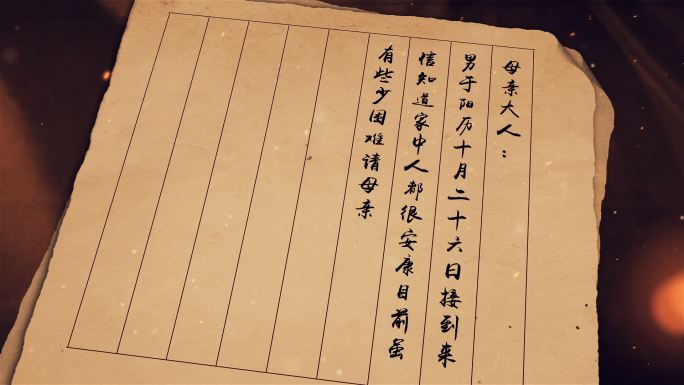 母亲大人：
男于阳历十月二十六日接到来
信知道家中人都很安康目前虽
有些少困难请母亲